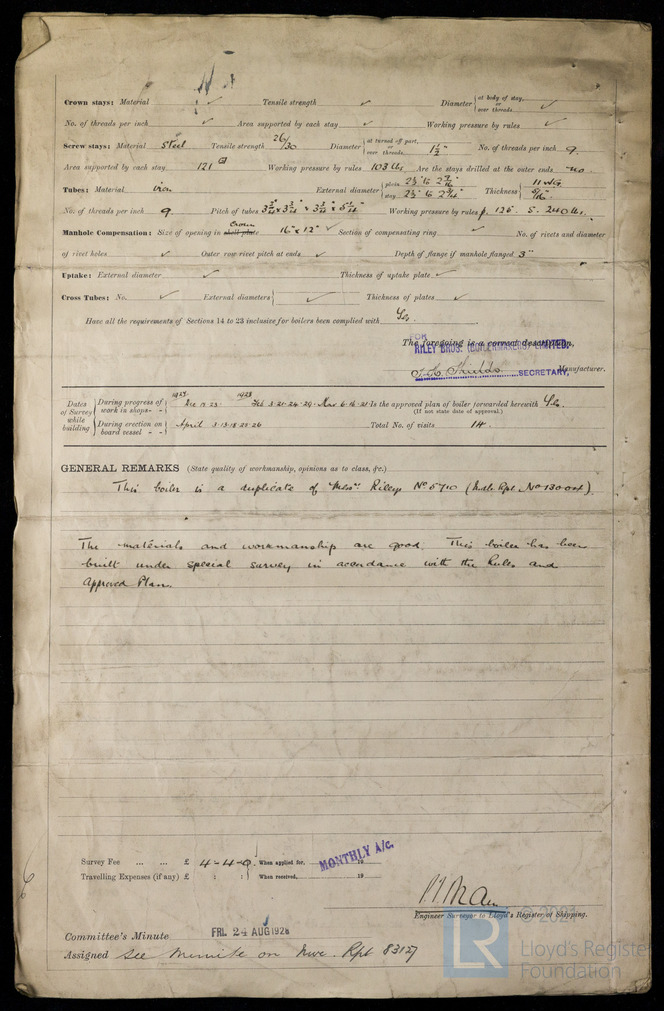 Crown stays: Material ✓ Tensile strength ✓ Diameter { at body of stay, or over threads ✓
No. of threads per inch ✓ Area supported by each stay ✓ Working pressure by rules ✓
Screw stays: Material Steel Tensile strength 26/30 Diameter { at turned off part, or over threads 1½" No. of threads per inch 9.
Area supported by each stay 121 Working pressure by rules 103 lbs. Are the stays drilled at the outer ends no.
Tubes: Material iron External diameter { plain stay Thickness { 11 WG
No. of threads per inch 9 Pitch of tubes Working pressure by rules p. 125 S. 240 lbs.
Manhole Compensation: Size of opening in shell plate Crown 16" x 12" ✓ Section of compensating ring ✓ No. of rivets and diameter
of rivet holes ✓ Outer row rivet pitch at ends ✓ Depth of flange if manhole flanged 3"
Uptake: External diameter ✓ Thickness of uptake plate ✓
Cross Tubes: No. ✓ External diameters { ✓ Thickness of plates ✓
Have all the requirements of Sections 14 to 23 inclusive for boilers been complied with Yes.
The foregoing is a correct description,
FOR
RILEY BROS. (BOILERMAKERS) LIMITED.
SECRETARY, Manufacturer.
Dates of Survey while building { During progress of work in shops - - Dec 1928 Feb 3·21·24·29· Mar 6·16·21 Is the approved plan of boiler forwarded herewith Yes.
(If not state date of approval.)
During erection on board vessel - - April Total No. of visits 14.
GENERAL REMARKS (State quality of workmanship, opinions as to class, &c.)
This boiler is a duplicate of Messrs. Rileys No 5710
The materials and workmanship are good. This boiler has been
built under special survey in accordance with the Rules and
Approved Plan.
Survey Fee ... ... £ 4-4-0 When applied for, 19
MONTHLY A/c.
Travelling Expenses (if any) £ : : When received, 19
Engineer Surveyor to Lloyd's Register of Shipping.
Committee's Minute FRI. 24 AUG 1928
Assigned See Minute on Nwc. Rpt 83127
© 2021
LR Lloyd's Register
Foundation